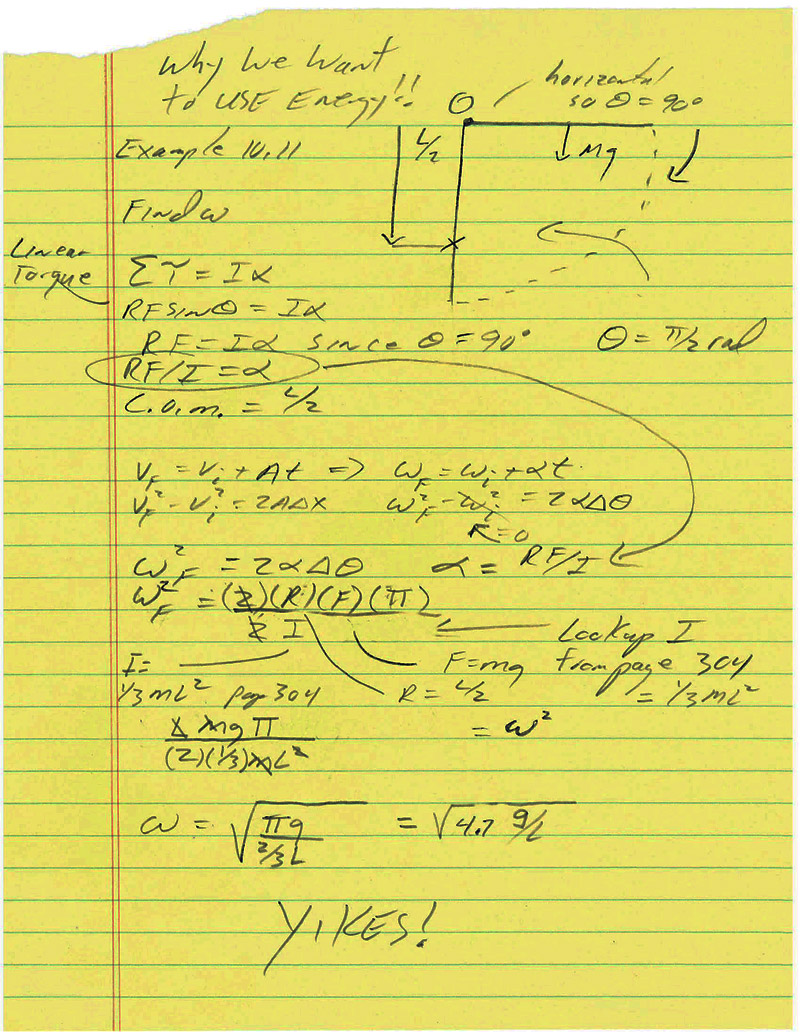 Why We Want
to USE Energy!!
horizontal
so θ = 90°
O
L/2
Mg
Example 10.11
Find ω
Linear
Torque
Στ = Iα
RF sinθ = Iα
RF = Iα since θ = 90° θ = π/2 rad
RF/I = α
C.O.M. = L/2
V_F = V_i + At ⇒ ω_F = ω_i + αt
V_F² - V_i² = 2AΔX ω_F² - ω_i² = 2αΔθ
= 0
ω_F² = 2αΔθ α = RF/I
ω_F² = (2)(R)(F)(π)
2 I
Lookup I
I = F = mg from page 304
1/3 mL² page 304 R = L/2 = 1/3 mL²
L mg π = ω²
(2)(1/3)mL²
ω = √(πg / 2/3 L) = √4.7 g/L
YIKES!